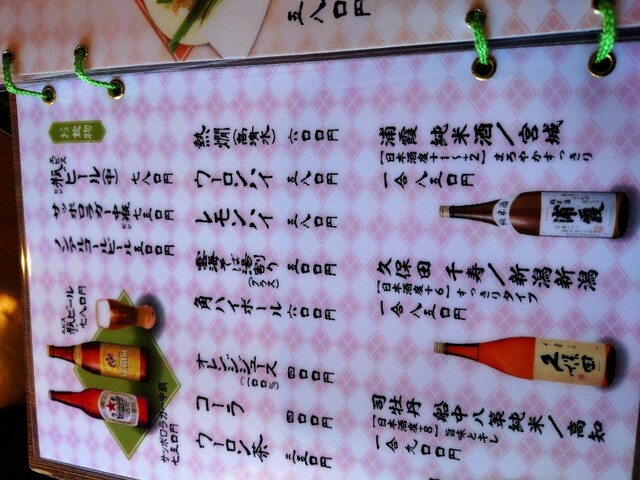 五八〇円
お飲物
瓶ビール 七八〇円
サッポロラガー中瓶 七五〇円
ノンアルコールビール 五〇〇円
瓶ビール
七八〇円
サッポロラガー中瓶
七五〇円
熱燗(高清水) 六〇〇円
ウーロンハイ 五八〇円
レモンハイ 五八〇円
雲海そば湯割り 五〇〇円
(グラス)
角ハイボール 六〇〇円
オレンジジュース 四〇〇円
(一〇〇%)
コーラ 四〇〇円
ウーロン茶 三五〇円
浦霞 純米酒/宮城
【日本酒度+1〜+2】 まろやかすっきり
一合 八五〇円
浦霞
久保田 千寿/新潟新潟
【日本酒度+6】 すっきりタイプ
一合 八五〇円
久保田
司牡丹 船中八策純米/高知
【日本酒度+8】 旨味とキレ
一合 九〇〇円